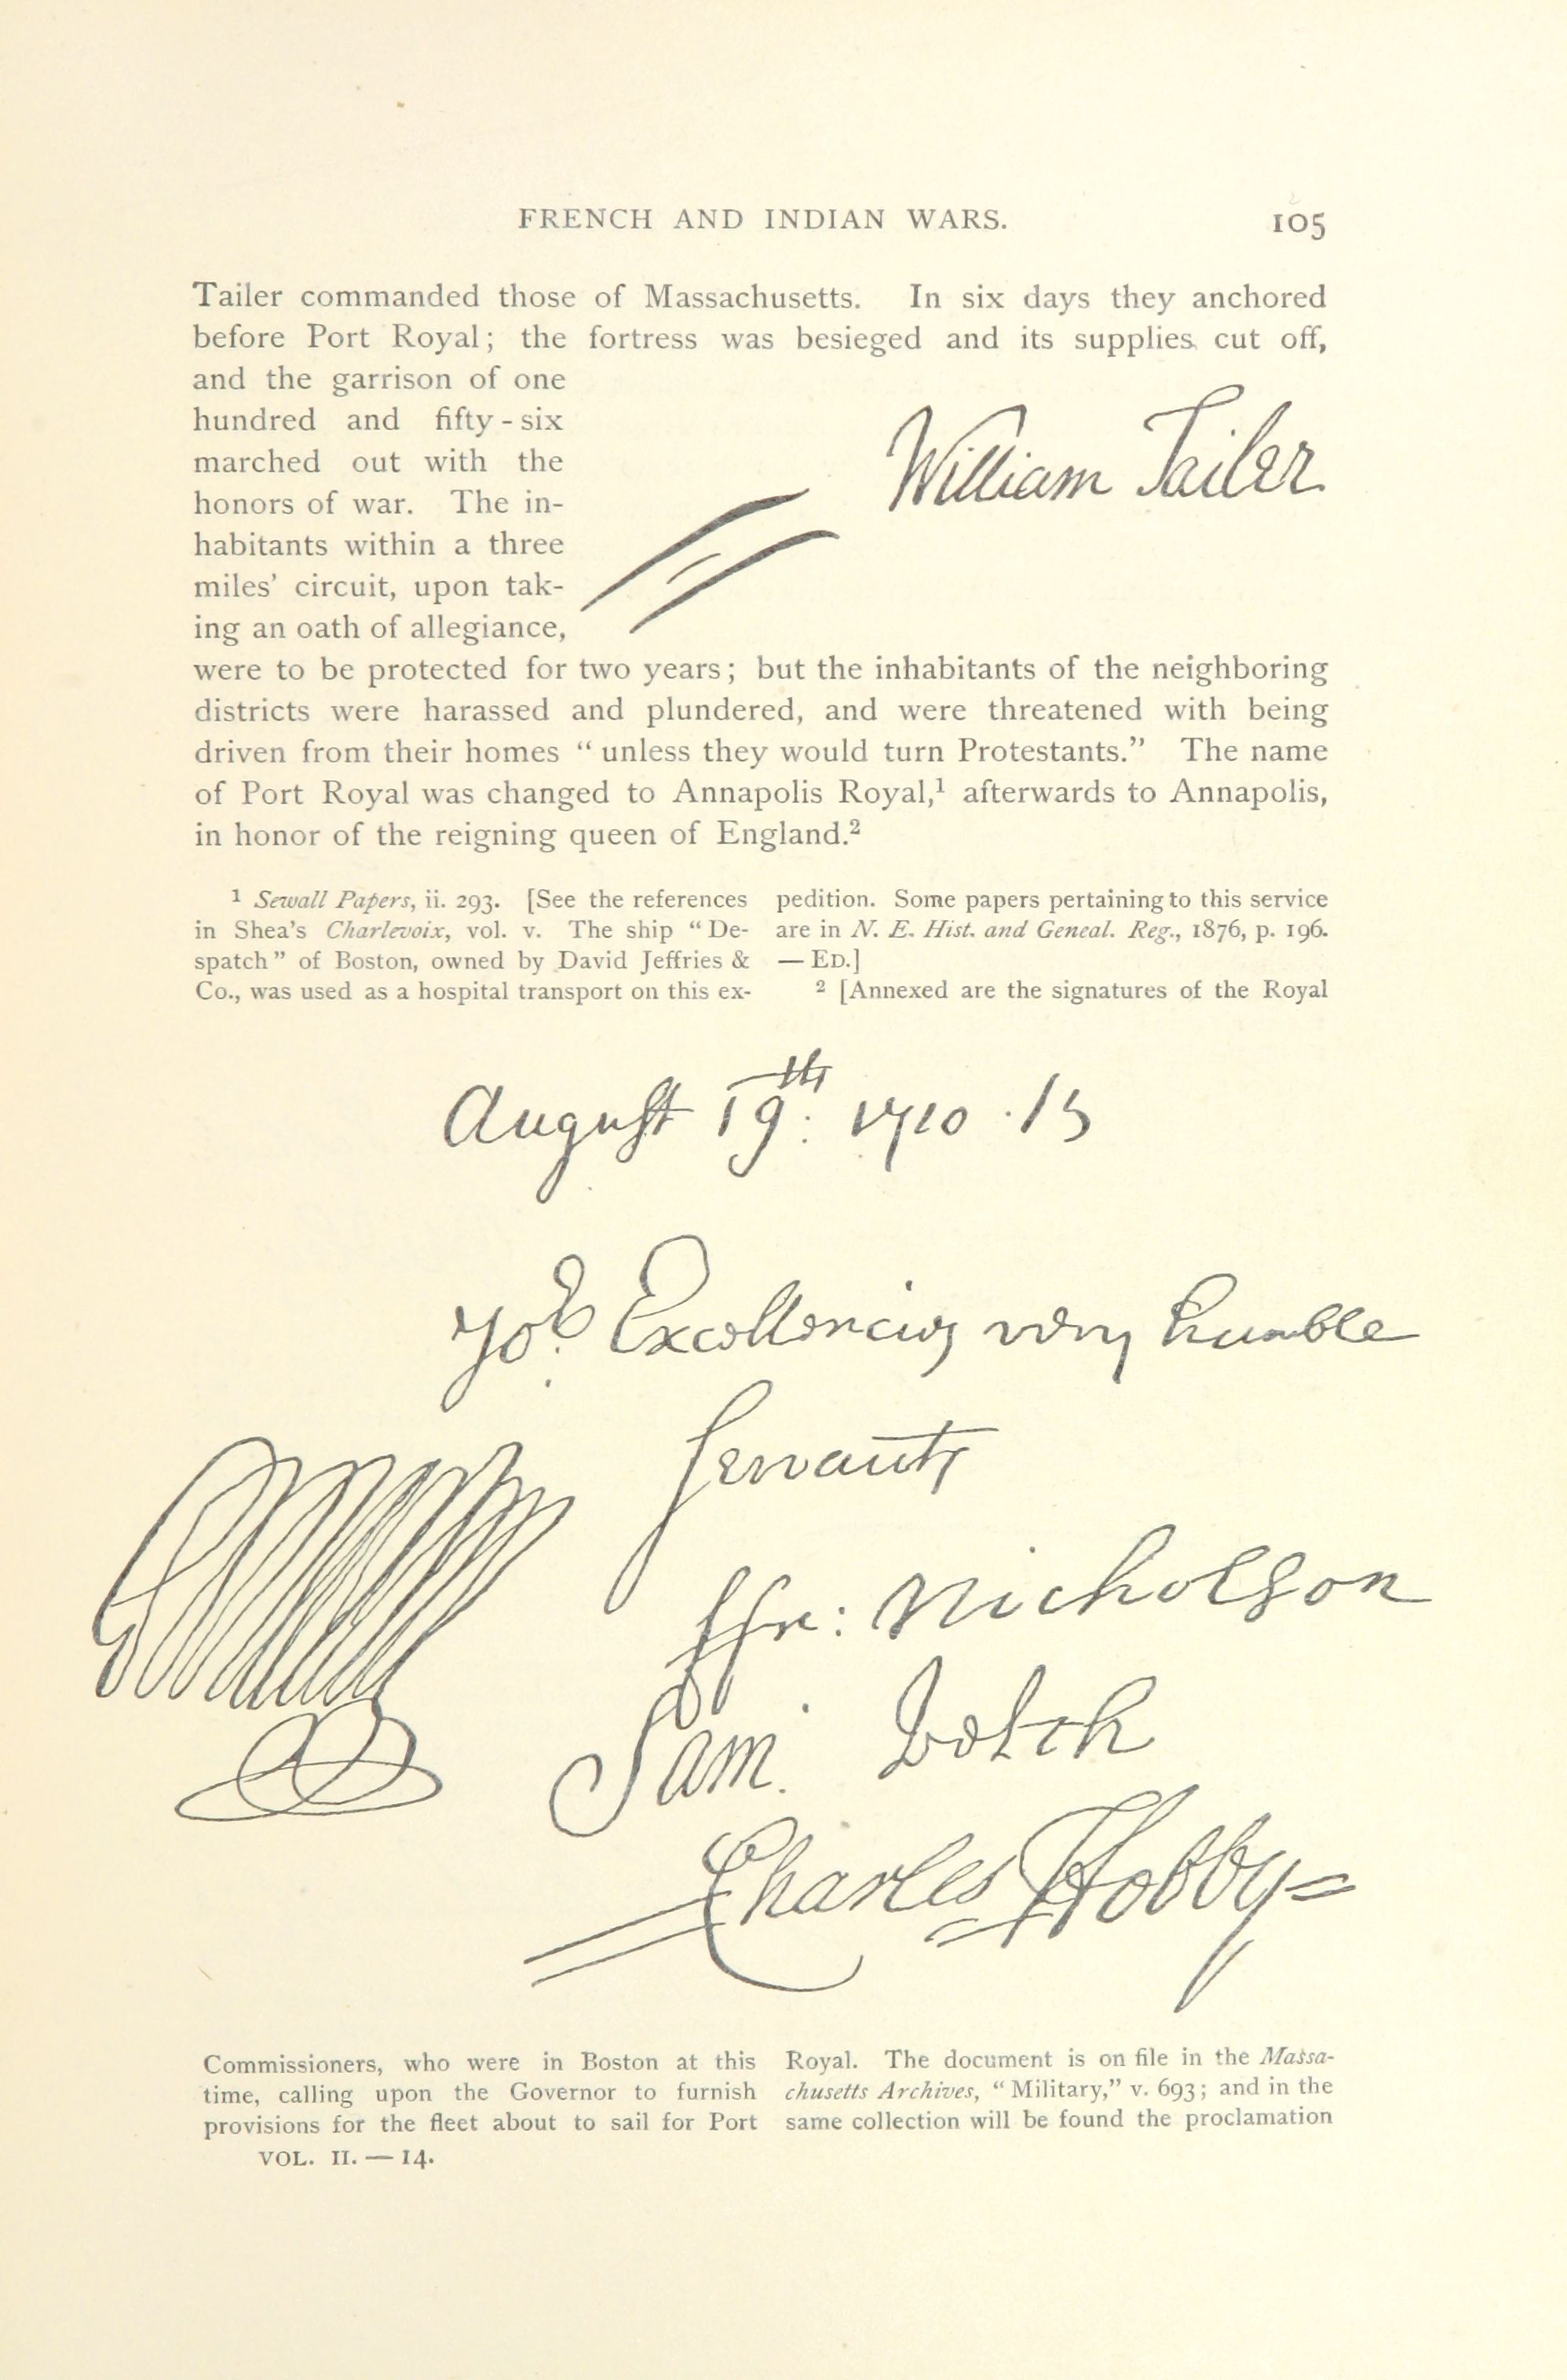 FRENCH AND INDIAN WARS. 105
Tailer commanded those of Massachusetts. In six days they anchored
before Port Royal; the fortress was besieged and its supplies cut off,
and the garrison of one
hundred and fifty-six
marched out with the
honors of war. The in-
habitants within a three
miles' circuit, upon tak-
ing an oath of allegiance,
William Tailer
were to be protected for two years; but the inhabitants of the neighboring
districts were harassed and plundered, and were threatened with being
driven from their homes "unless they would turn Protestants." The name
of Port Royal was changed to Annapolis Royal,¹ afterwards to Annapolis,
in honor of the reigning queen of England.²
¹ Sewall Papers, ii. 293. [See the references
in Shea's Charlevoix, vol. v. The ship "De-
spatch" of Boston, owned by David Jeffries &
Co., was used as a hospital transport on this ex-
pedition. Some papers pertaining to this service
are in N. E. Hist. and Geneal. Reg., 1876, p. 196.
— ED.]
² [Annexed are the signatures of the Royal
August 19th: 1710
Excellencies very humble
Servants
ffr: Nicholson
Sam. Vetch
Charles Hobby
Commissioners, who were in Boston at this
time, calling upon the Governor to furnish
provisions for the fleet about to sail for Port
Royal. The document is on file in the Massa-
chusetts Archives, "Military," v. 693; and in the
same collection will be found the proclamation
VOL. II. — 14.